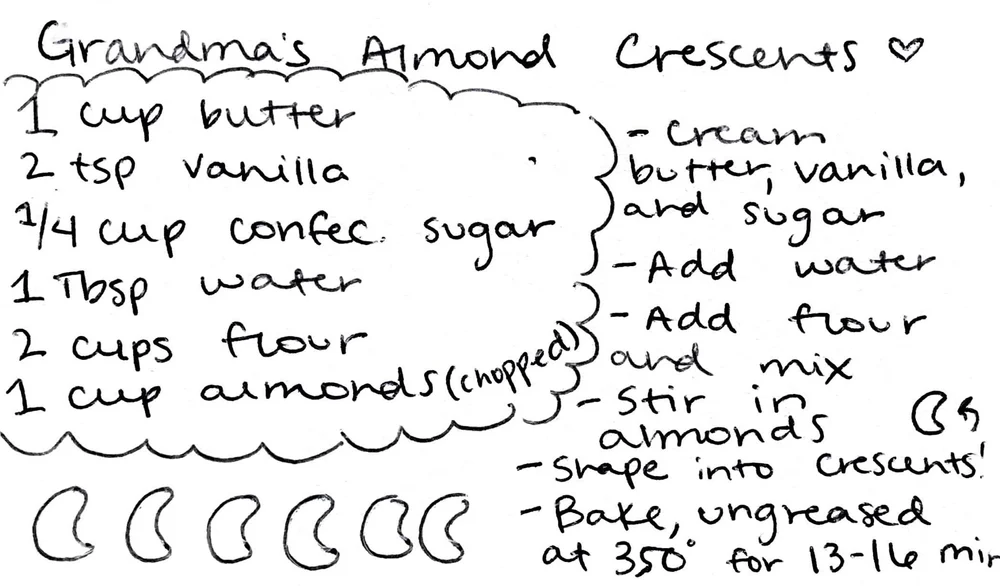 Grandma's Almond Crescents ♡
1 cup butter
2 tsp vanilla
1/4 cup confec. sugar
1 Tbsp water
2 cups flour
1 cup almonds (chopped)
- Cream
butter, vanilla,
and sugar
- Add water
- Add flour
and mix
- Stir in
almonds
- Shape into crescents!
- Bake, ungreased
at 350° for 13-16 min